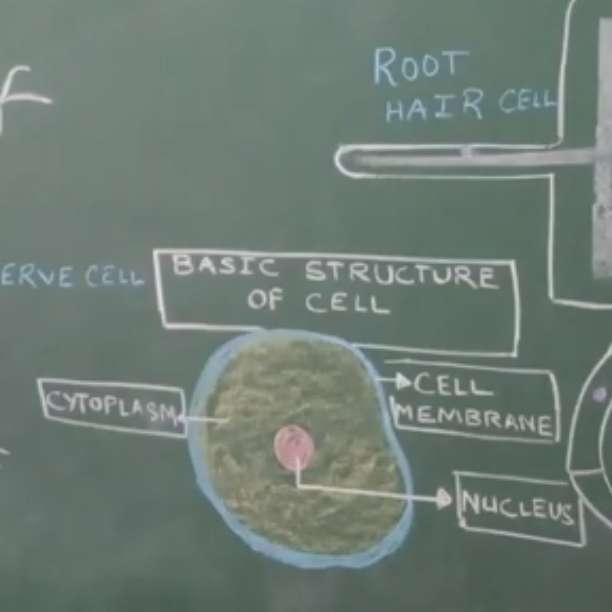 ROOT
HAIR CELL
ERVE CELL
BASIC STRUCTURE
OF CELL
CYTOPLASM
CELL
MEMBRANE
NUCLEUS